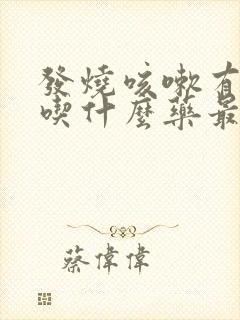 發燒咳嗽有
喫什麼藥最
蔡偉偉